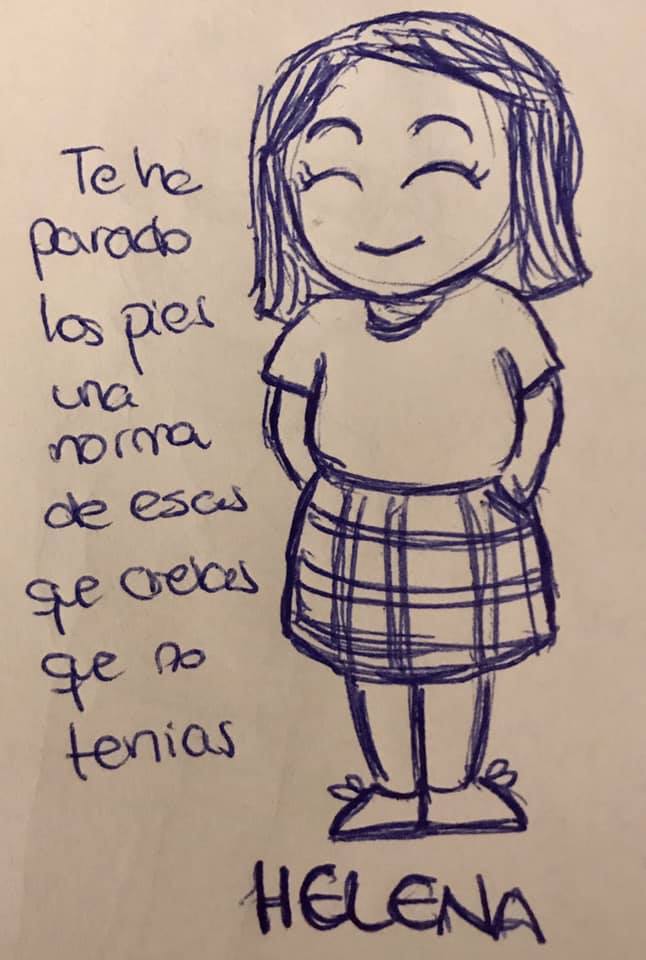 Te he
parado
los pies
una
norma
de esas
que creias
que no
tenias
HELENA